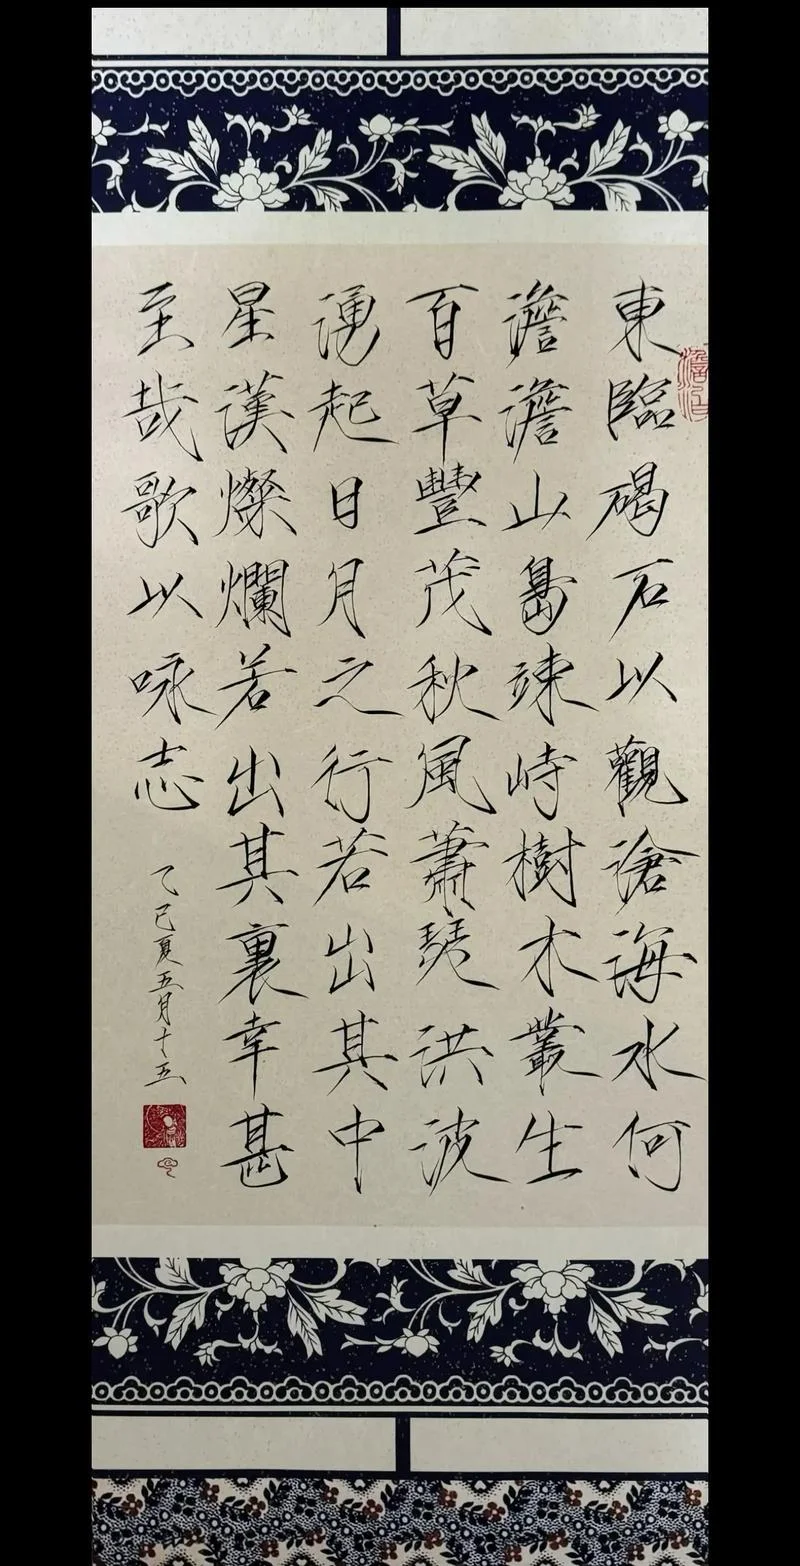 東臨碣石以觀滄海水何
澹澹山島竦峙樹木叢生
百草豐茂秋風蕭瑟洪波
湧起日月之行若出其中
星漢燦爛若出其裏幸甚
至哉歌以咏志
乙巳夏五月十五